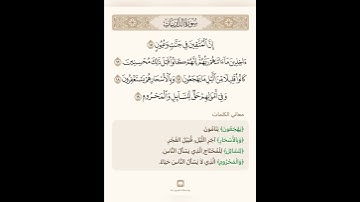 سُورَةُ الذَّارِيَاتِ
إِنَّ ٱلْمُتَّقِينَ فِي جَنَّٰتٖ وَعُيُونٍ ١٥
ءَاخِذِينَ مَآ ءَاتَىٰهُمۡ رَبُّهُمۡۚ إِنَّهُمۡ كَانُواْ قَبۡلَ ذَٰلِكَ مُحۡسِنِينَ ١٦
كَانُواْ قَلِيلٗا مِّنَ ٱلَّيۡلِ مَا يَهۡجَعُونَ ١٧ وَبِٱلۡأَسۡحَارِ هُمۡ يَسۡتَغۡفِرُونَ ١٨
وَفِيٓ أَمۡوَٰلِهِمۡ حَقّٞ لِّلسَّآئِلِ وَٱلۡمَحۡرُومِ ١٩
معاني الكلمات
﴿يَهْجَعُونَ﴾ يَنَامُونَ
﴿وَبِالْأَسْحَارِ﴾ آخِرِ اللَّيْلِ، قُبَيْلَ الفَجْرِ.
﴿لِلسَّائِلِ﴾ لِلْمُحْتَاجِ الَّذِي يَسْأَلُ النَّاسَ.
﴿وَالْمَحْرُومِ﴾ الَّذِي لَا يَسْأَلُ النَّاسَ حَيَاءً.